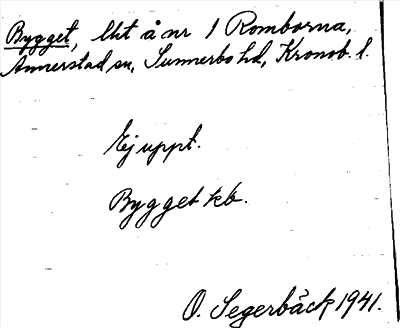 Bygget, lht å nr 1 Romborna,
Annerstad sn, Sunnerbo hd, Kronob. l.
Ej uppt.
Bygget kb.
O. Segerbäck 1941.